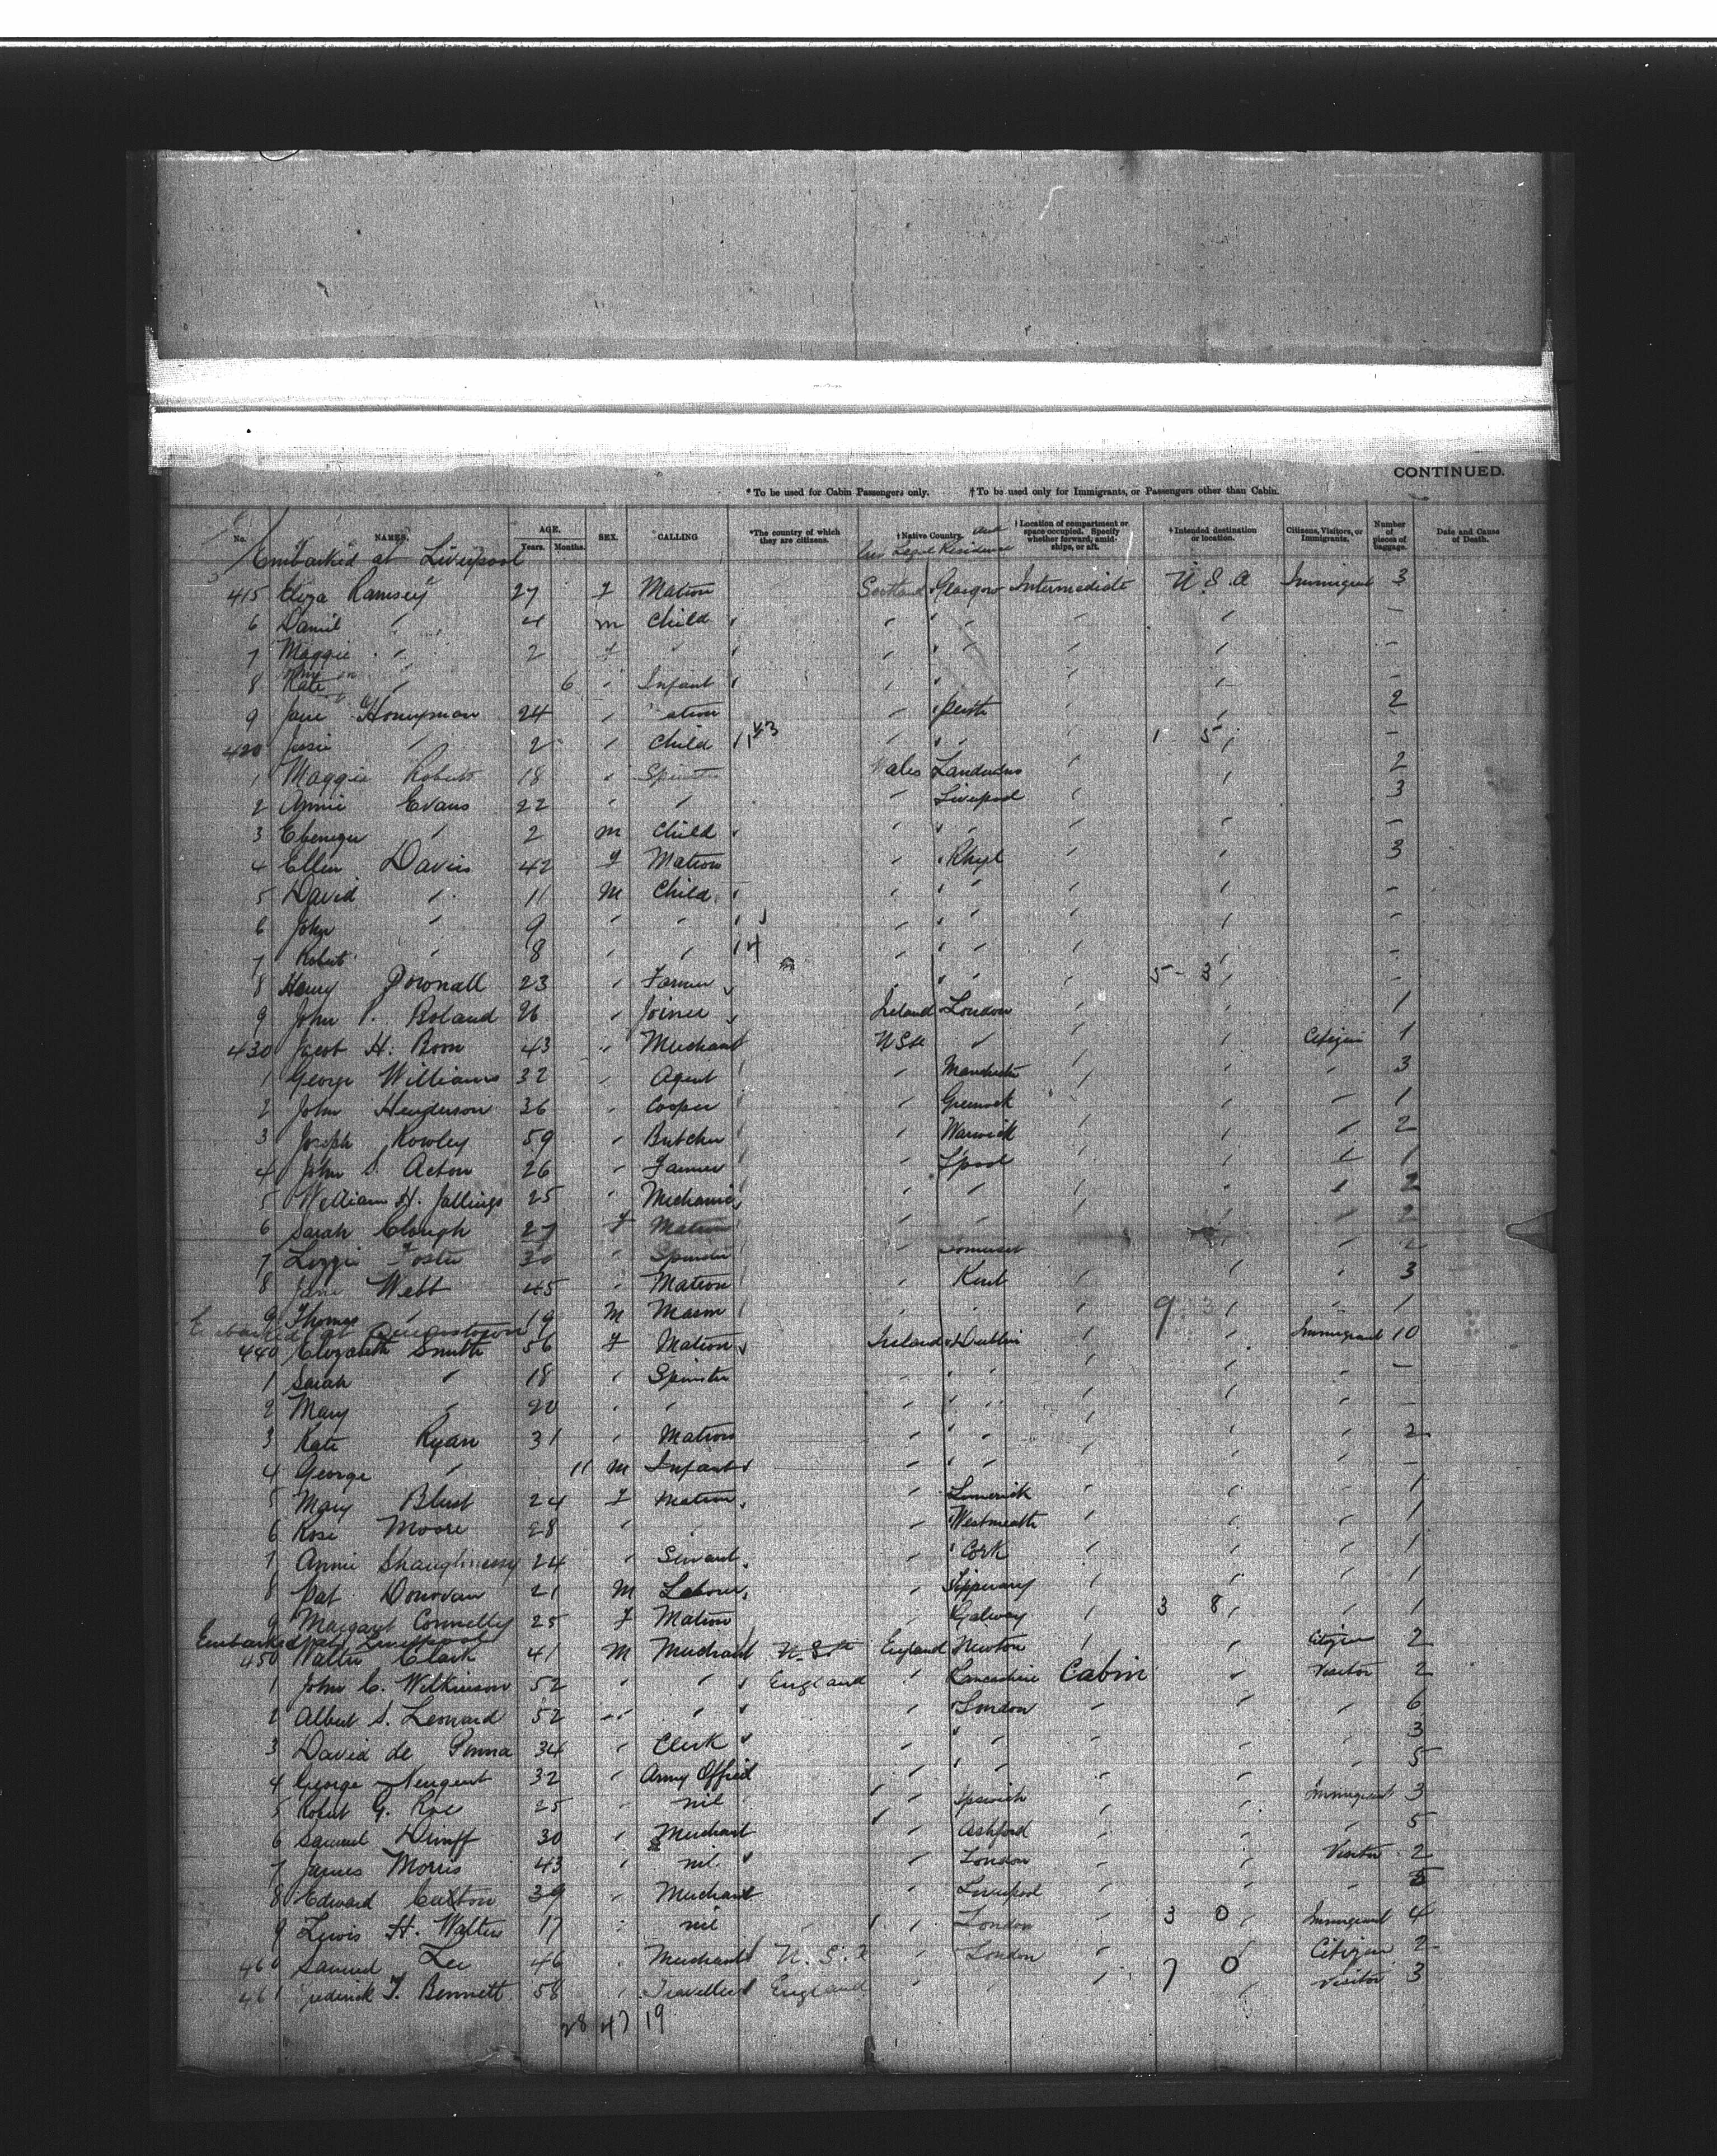 CONTINUED.
* To be used for Cabin Passengers only. † To be used only for Immigrants, or Passengers other than Cabin.
No. NAMES. AGE. Years. Months. SEX. CALLING *The country of which they are citizens. †Native Country and Legal Residence †Location of compartment or space occupied. Specify whether forward, amidships, or aft. †Intended destination or location. Citizens, Visitors, or Immigrants. Number of pieces of baggage. Date and Cause of Death.
Embarked at Liverpool
415 Eliza Ramsey 27 F Matron Scotland Glasgow Intermediate U.S.A Immigrant 3
6 Daniel " 4 m Child " " " " " -
7 Maggie " 2 f " " " " " -
8 Kate " 6 " Infant " " " " -
9 Jane Honeyman 24 " " Perth " " 2
420 Jessie " 2 " Child " " " 1 5 " -
1 Maggie Roberts 18 " Spinster Wales " " 2
2 Annie Evans 22 " " " Liverpool " " 3
3 Ebenezer " 2 m Child " " " " -
4 Ellen Davies 42 f Matron " Rhyl " " 3
5 David " 11 M Child " " " " -
6 John " 9 " " " " " " -
7 Robert " 8 " " 4 " " " " -
8 Henry Pownall 23 " Farmer " " " 5 - 3 " -
9 John P. Boland 26 " Joiner Ireland London " " 1
430 Jacob H. Boon 43 " Merchant USA " " " Citizen 1
1 George Williams 32 " Agent " Manchester " " " 3
2 John Henderson 36 " Cooper " Greenock " " " 1
3 Joseph Rowley 59 " Butcher " Warwick " " " 2
4 John S. Acton 26 " Farmer " Lpool " " " 1
5 William H. Jallings 25 " Mechanic " " " " " 2
6 Sarah Clough 27 F Matron " " " " " 2
7 Lizzie Foster 30 " Spinster " Somerset " " " 2
8 Jane Webb 45 " Matron " Kent " " " 3
9 Thomas " 19 M Mason " " " 9 3 " " 1
Embarked at Queenstown
440 Elizabeth Smith 56 F Matron Ireland Dublin " " Immigrant 10
1 Sarah " 18 " Spinster " " " " " -
2 Mary " 20 " " " " " " " -
3 Kate Ryan 31 " Matron " " " " " 2
4 George " 11 M Infant " " " " " -
5 Mary Blust 24 F Matron " Limerick " " " 1
6 Rose Moore 28 " " " Westmeath " " " 1
7 Annie Shaughnessy 24 " Servant " Cork " " " 1
8 Pat Donovan 21 M Labour " Tipperary " " " 1
9 Margaret Connelly 25 F Matron " Galway " 3 8 " " 1
Embarked at Liverpool
450 Walter Clark 41 M Merchant England Newton " " Citizen 2
1 John C. Wilkinson 52 " " England " Lancashire Cabin " Visitor 2
2 Albert S. Leonard 52 " " " London " " " 6
3 David de Penna 34 " Clerk " " " " " " 3
4 George Nugent 32 " Army Officer " " " " " " 5
5 Robert G. Roe 25 " nil " " Ipswich " " Immigrant 3
6 Samuel 30 " Merchant " " Ashford " " " 5
7 James Morris 43 " nil " London " " Visitor 2
8 Edward Caxton 39 " Merchant Liverpool " " " 5
9 Lewis H. Walter 17 " nil " " London " 3 0 " Immigrant 4
460 Samuel Lee 46 " Merchant U.S.A " London " " Citizen 2
461 Frederick T. Bennett 58 " Traveller England " " " 7 0 " Visitor 3
28 47 19